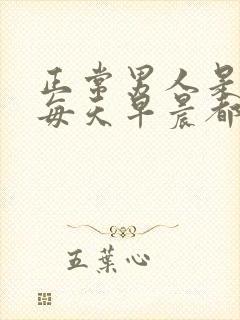 正常男人是
每天早晨都
五葉心